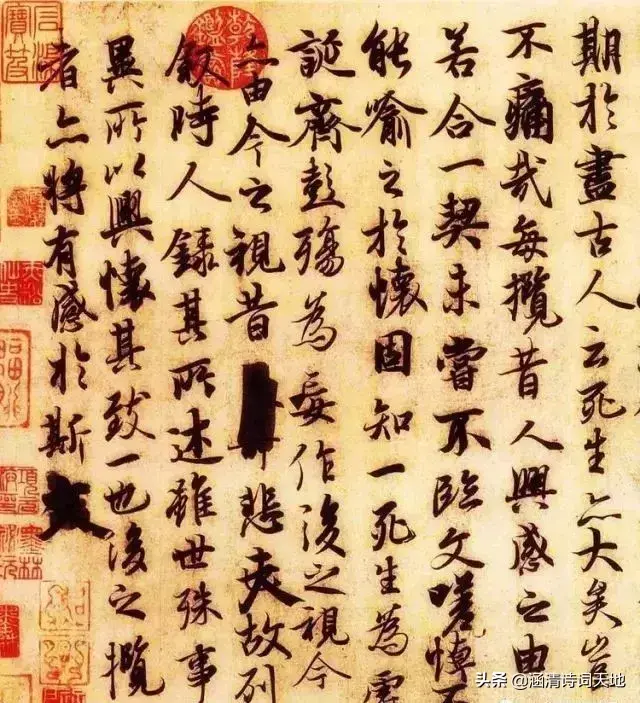 期於盡古人云死生亦大矣豈
不痛哉每攬昔人興感之由
若合一契未嘗不臨文嗟悼不
能喻之於懷固知一死生為虛
誕齊彭殤為妄作後之視今
亦由今之視昔悲夫故列
敘時人錄其所述雖世殊事
異所以興懷其致一也後之攬
者亦將有感於斯文
头条 @涵清诗词天地